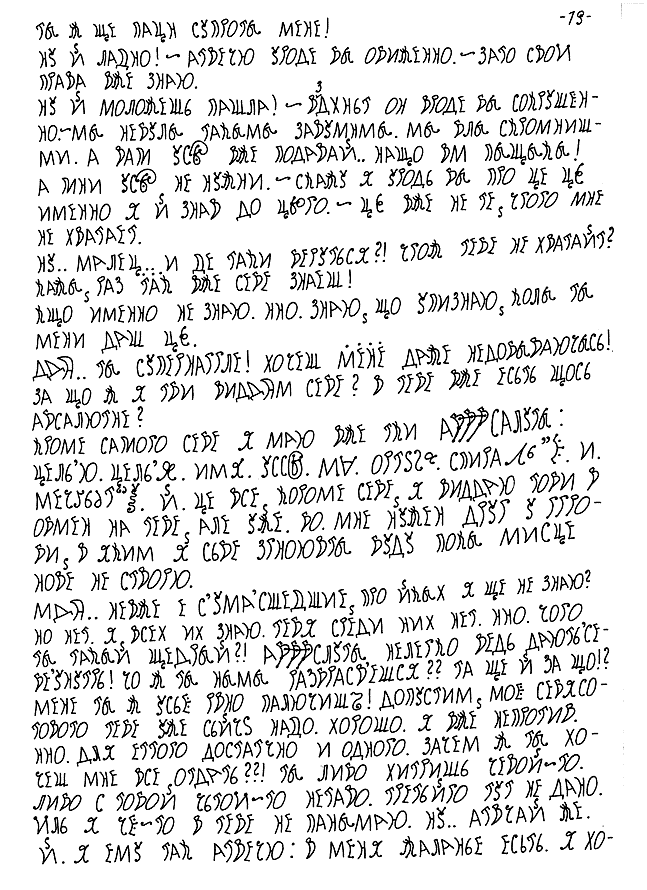 -19-
ТЫ Ж ЩЕ ПАЦН СУПРОТЫ МЕНЕ!
НУ Й ЛАДНО! — АТВЕЧЮ УРОДЕ БЫ ОБИЖЕННО. — ЗАТО СВОИ
ПРАВА ВЖЕ ЗНАЮ.
НУ Й МОЛОЖЕШЬ ПАШЛА! — ВЗДХНЬТ ОН ВРОДЕ БЫ СОКРУШЕН-
НО. — МЫ НЕБУЛЫ ТАКЫМЫ ЗАВУМНМЫ. МЫ БЛЫ СКРОМНИШ-
МИ. А ВАМ УСЁ ВЖЕ ПОДАВАЙ.. НАЩО ВМ ПЫЩЫКЫ!
А МИНИ УСЁ, НЕ НУЖНИ. — СКАЖУ Я УРОДЬ БЫ ПРО ЦЕ ЦЕ
ИМЕННО Я Й ЗНАВ ДО ЦЬОГО. — ЦЕ ВЖЕ НЕ ТЕ, ЧТОГО МНЕ
НЕ ХВАТАЕТ.
НУ.. МАЛЕЦ... И ДЕ ТАКИ БЕРУТЬСЯ?! ЧТОЖ ТЕБЕ НЕ ХВАТАЙТ?
КАЖЫ, РАЗ ТАК ВЖЕ СЕБЕ ЗНАЕШ!
КЩО ИМЕННО НЕ ЗНАЮ. ННО. ЗНАЮ, ЩО УПИЗНАЮ, КОЛЫ ТЫ
МЕНИ ДАШ ЦЕ.
ТЫ СУПЕРНАГГЛЕ! ХОЧЕШ МЁНЁ ДАЖЕ НЕДОБЫВАЮЧЫСЬ!
ЗА ЩО Ж Я ТБИ ВИДДАМ СЕБЕ? В ТЕБЕ ВЖЕ ЕСЬТЬ ЩОСЬ
АБСАЛЮТНЕ?
КРОМЕ САМОГО СЕБЕ Я МАЮ ВЖЕ ТКИ
ЦЕЛЬ'Ю. ИМЯ. СПИРА И.
Й. ЦЕ ВСЕ, КОРОМЕ СЕБЕ, Я ВИДДАЮ ТОБИ В
ОБМЕН НА ТЕБЕ, АЛЕ УЖЕ. БО. МНЕ НУЖЕН ДРУГ У ГТРО-
БИ, В ЯКИМ Я СЬБЕ ЗГНОЮВТЫ БУДУ ПОКЫ МИСЦЕ
НОВЕ НЕ СТВОРЮ.
НЕВЖЕ Е С'УМА'СШЕДШИЕ, ПРО ЙКЫХ Я ЩЕ НЕ ЗНАЮ?
НО НЕТ. Я, ВСЕХ ИХ ЗНАЮ. ТЕБЯ СРЕДИ НИХ НЕТ. ННО. ЧОГО
ТЫ ТАКЫЙ ЩЕДРЫЙ?! НЕЛЕГКО ВЕДЬ ДАЮТЬ'СЕ-
БЕ'УНУТРЬ! ЧО Ж ТЫ НЫМЫ РАЗБРАСВ'ЕШСЯ?? ТА ЩЕ Й ЗА ЩО!?
МЕНЕ ТЫ Ж УСЬЕ РВНО ДОПУСТИМ, МОЕ СЕБЯСО-
ТОБОГО ТЕБЕ УЖЕ НАДО. ХОРОШО. Я ВЖЕ НЕПРОТИВ.
ННО. ДЛЯ ЕТОГО ДОСТАТЧНО И ОДНОГО. ЗАЧЕМ Ж ТЫ ХО-
ЧЕШ МНЕ ВСЕ, ОТДАТЬ??! ТЫ ЛИБО ХИТРИШЬ ЧЕВОЙ-ТО.
ЛИБО С ТОБОЙ ЧЬТОЙ-ТО НЕТАВО. ТРЕТЬЙГО ТУТ НЕ ДАНО.
ИЛЬ Я ЧЕ-ТО В ТЕБЕ НЕ ПАНЫМАЮ. НУ.. АТВЧАЙ ЖЕ.
Й. Я ЕМУ ТАК АТВЕЧЮ: В МЕНЯ ЖАЛАНЬЕ ЕСЬТЬ. Я ХО-